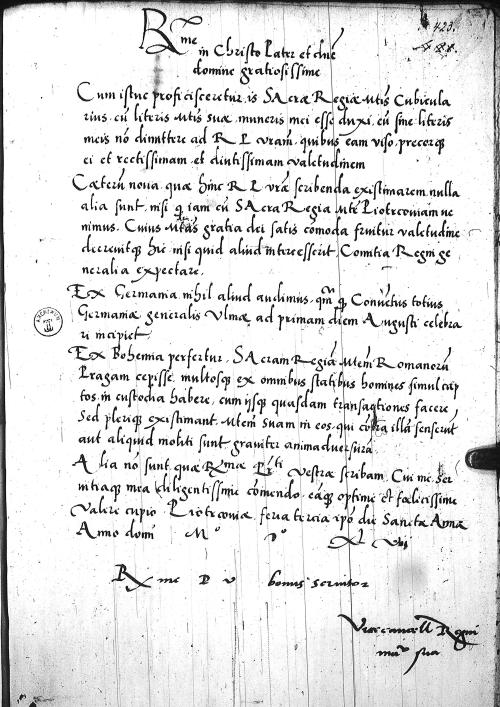 423.
R me
in Christo Pater et dne
domine gratiosissime
Cum istuc proficisceretur is SAcræ Regiæ Mtis Cubicula
rius, cu literis Mtis suæ, muneris mei esse duxi, eu sine literis
meis no dimittere ad R L vram, quibus eam viso, precorq
ei et rectissimam et diutissimam valetudinem
Cæteru noua, quæ hinc R L vræ scribenda existimarem nulla
alia sunt, nisi q iam cu SAcra Regia Mte Piotrcouiam ue
nimus. Cuius Mtas gratia dei satis comoda fruitur valetudine
decreuitq hic nisi quid aliud intreesserit, Comitia Regni ge
neralia expectare.
Ex Germania nihil aliud audimus, qm q Conuetus totius
Germaniæ generalis Vlmæ ad primam diem Augusti celebra
ri incipiet.
Ex Bohemia perfertur, SAcram Regia Mtem Romanoru
Pragam cepisse, multosq ex omnibus statibus homines simul cap
tos, in custodia habere, cum ijsq quasdam transactiones facere
Sed pleriq existimant, Mtem suam in eos, qui cotra illa senserut
aut aliquid moliti sunt grauiter animaduersura.
Alia no sunt, quæ Rmæ Pti Vestræ scribam. Cui me, ser
uitiaq mea diligentissime comendo, eaq optime et fœlicissime
valere cupio. Piotrcouiæ, feria tercia ipo die Sanctæ Annæ
Anno domi M° D° XL VII
R me D V bonus seruitor
Vicecancell Regni
mau sua